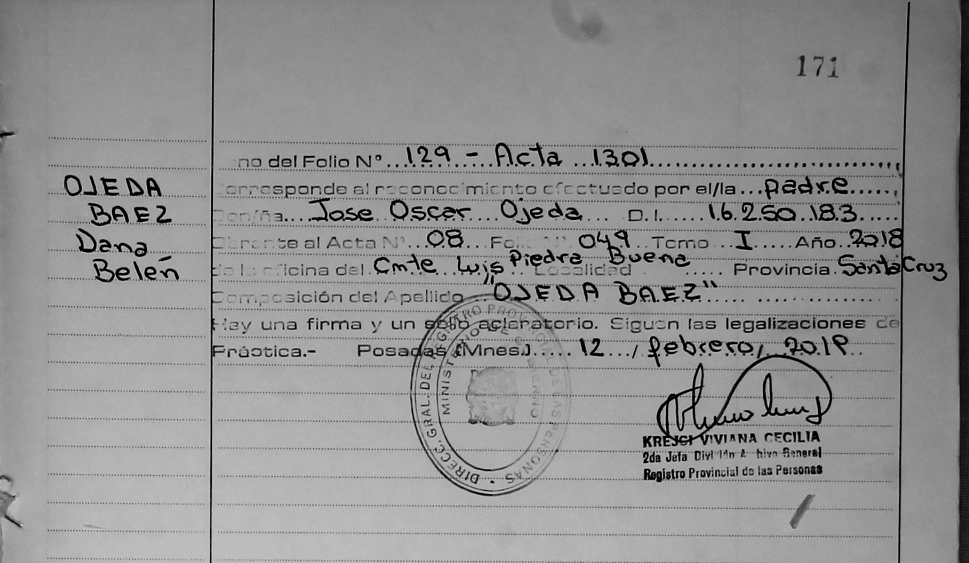 171
no del Folio N° 129 - Acta 1301
OJEDA
BAEZ
Dana
Belén
corresponde al reconocimiento efectuado por el/la padre
Don/ña Jose Oscar Ojeda D.I. 16.250.183
Obrante al Acta N° 08 Folio N° 049 Tomo I Año 2018
de la oficina del Cmte Luis Piedra Buena Localidad Provincia Santa Cruz
Composición del Apellido "OJEDA BAEZ"
Hay una firma y un sello aclaratorio. Siguen las legalizaciones de
Práctica.- Posadas (Mnes.) 12 / febrero /
DIRECC. GRAL. DEL REGISTRO PROVINCIAL DE LAS PERSONAS
MINISTERIO DE GOBIERNO
KREJCI VIVIANA CECILIA
2da Jefa División Archivo General
Registro Provincial de las Personas